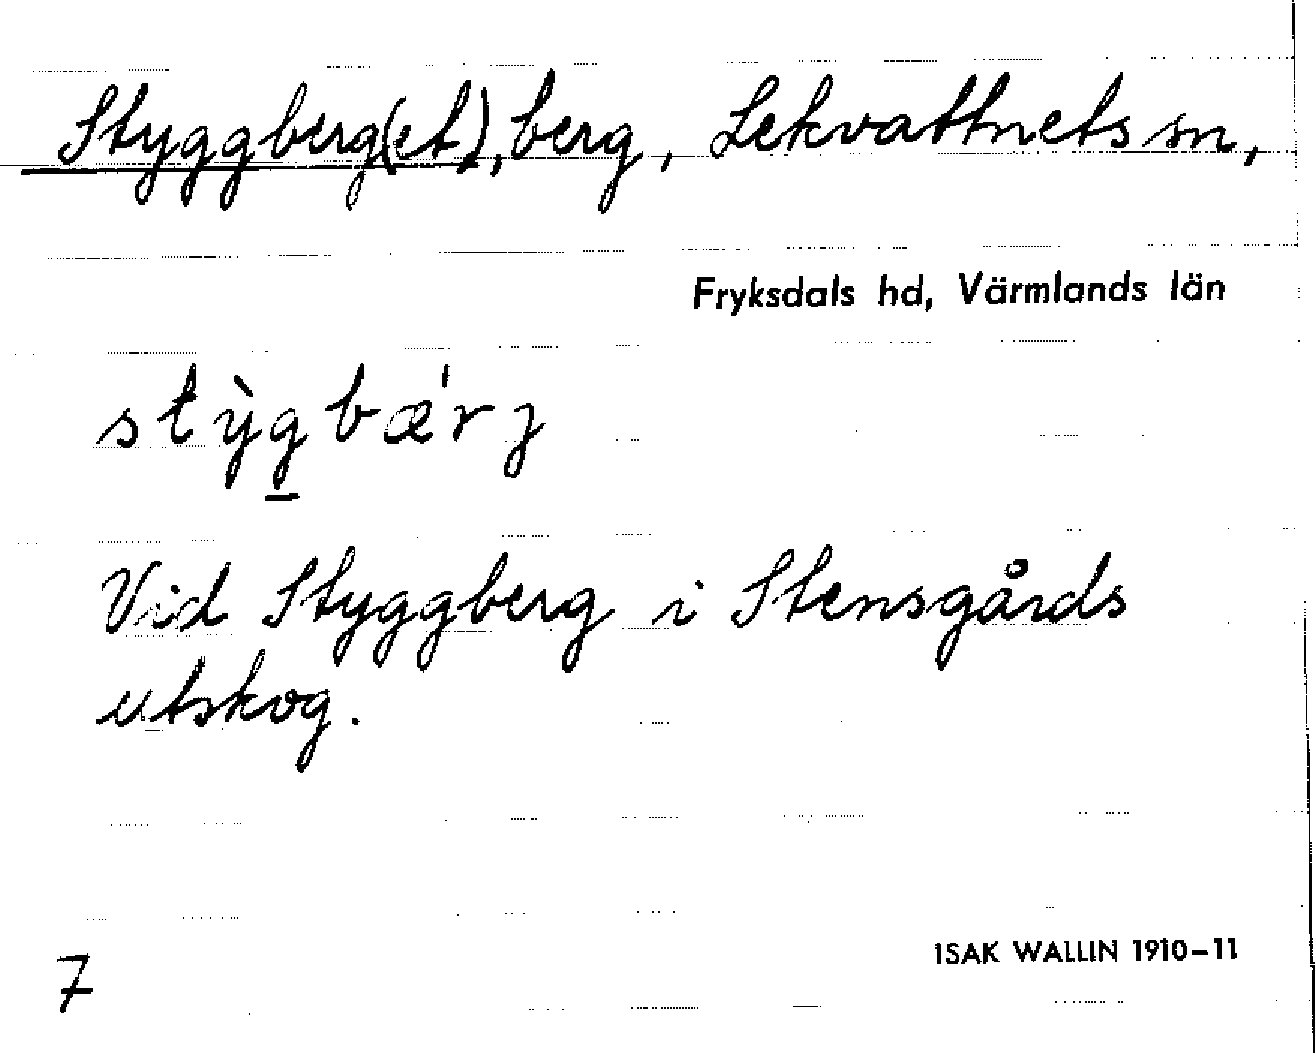 Styggberg(et), berg, Lekvattnets sn,
Fryksdals hd, Värmlands län
stỳg̲bæ'rȷ
Vid Styggberg i Stensgårds
utskog.
7
ISAK WALLIN 1910–11